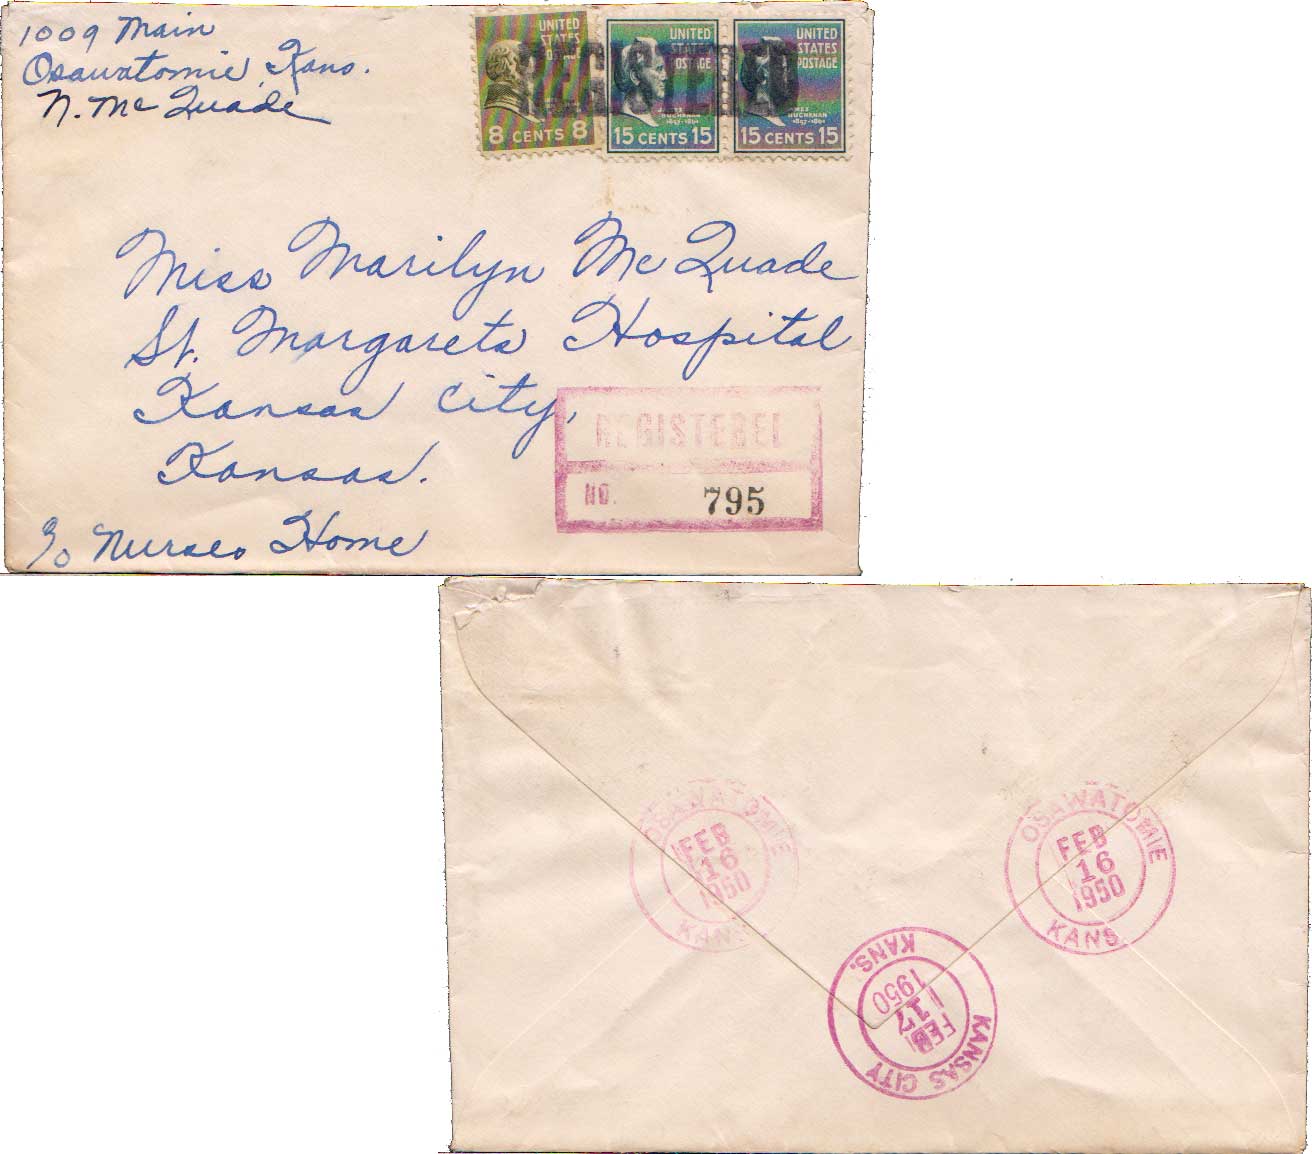 1009 Main
Osawatomie, Kans.
N. McQuade
UNITED
STATES
POSTAGE
8 CENTS 8
UNITED
STATES
POSTAGE
JAMES
BUCHANAN
1857-1861
15 CENTS 15
UNITED
STATES
POSTAGE
JAMES
BUCHANAN
1857-1861
15 CENTS 15
REGISTERED
Miss Marilyn McQuade
St. Margarets Hospital
Kansas City,
Kansas.
c/o Nurses Home
REGISTERED
NO. 795
OSAWATOMIE
FEB
16
1950
KANS
OSAWATOMIE
FEB
16
1950
KANS
KANSAS CITY
FEB
17
1950
KANS.